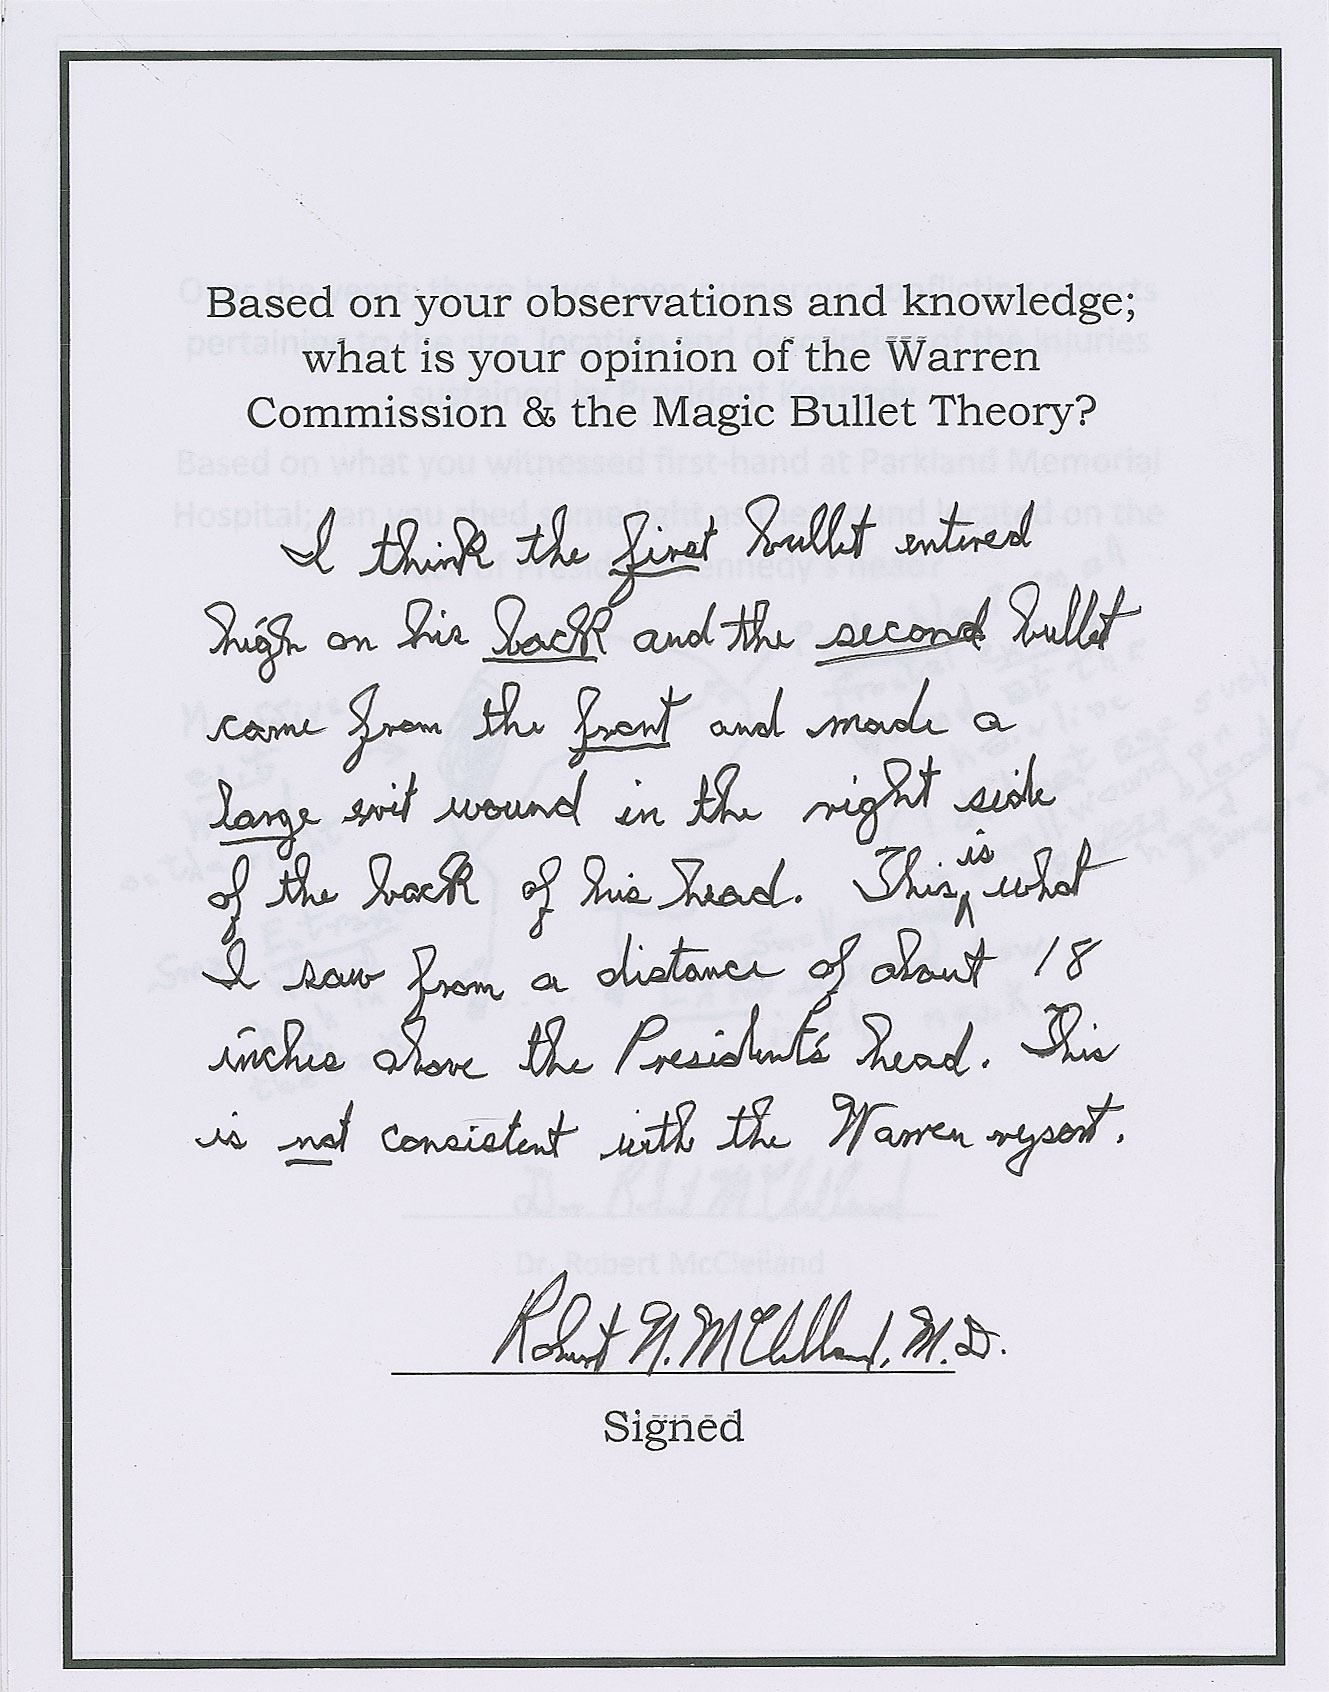 Based on your observations and knowledge;
what is your opinion of the Warren
Commission & the Magic Bullet Theory?
I think the first bullet entered
high on his back and the second bullet
came from the front and made a
large exit wound in the right side
of the back of his head. This is what
I saw from a distance of about 18
inches above the President's head. This
is not consistent with the Warren report.
Robert N. McClelland, M.D.
Signed
Dr. Robert McClelland